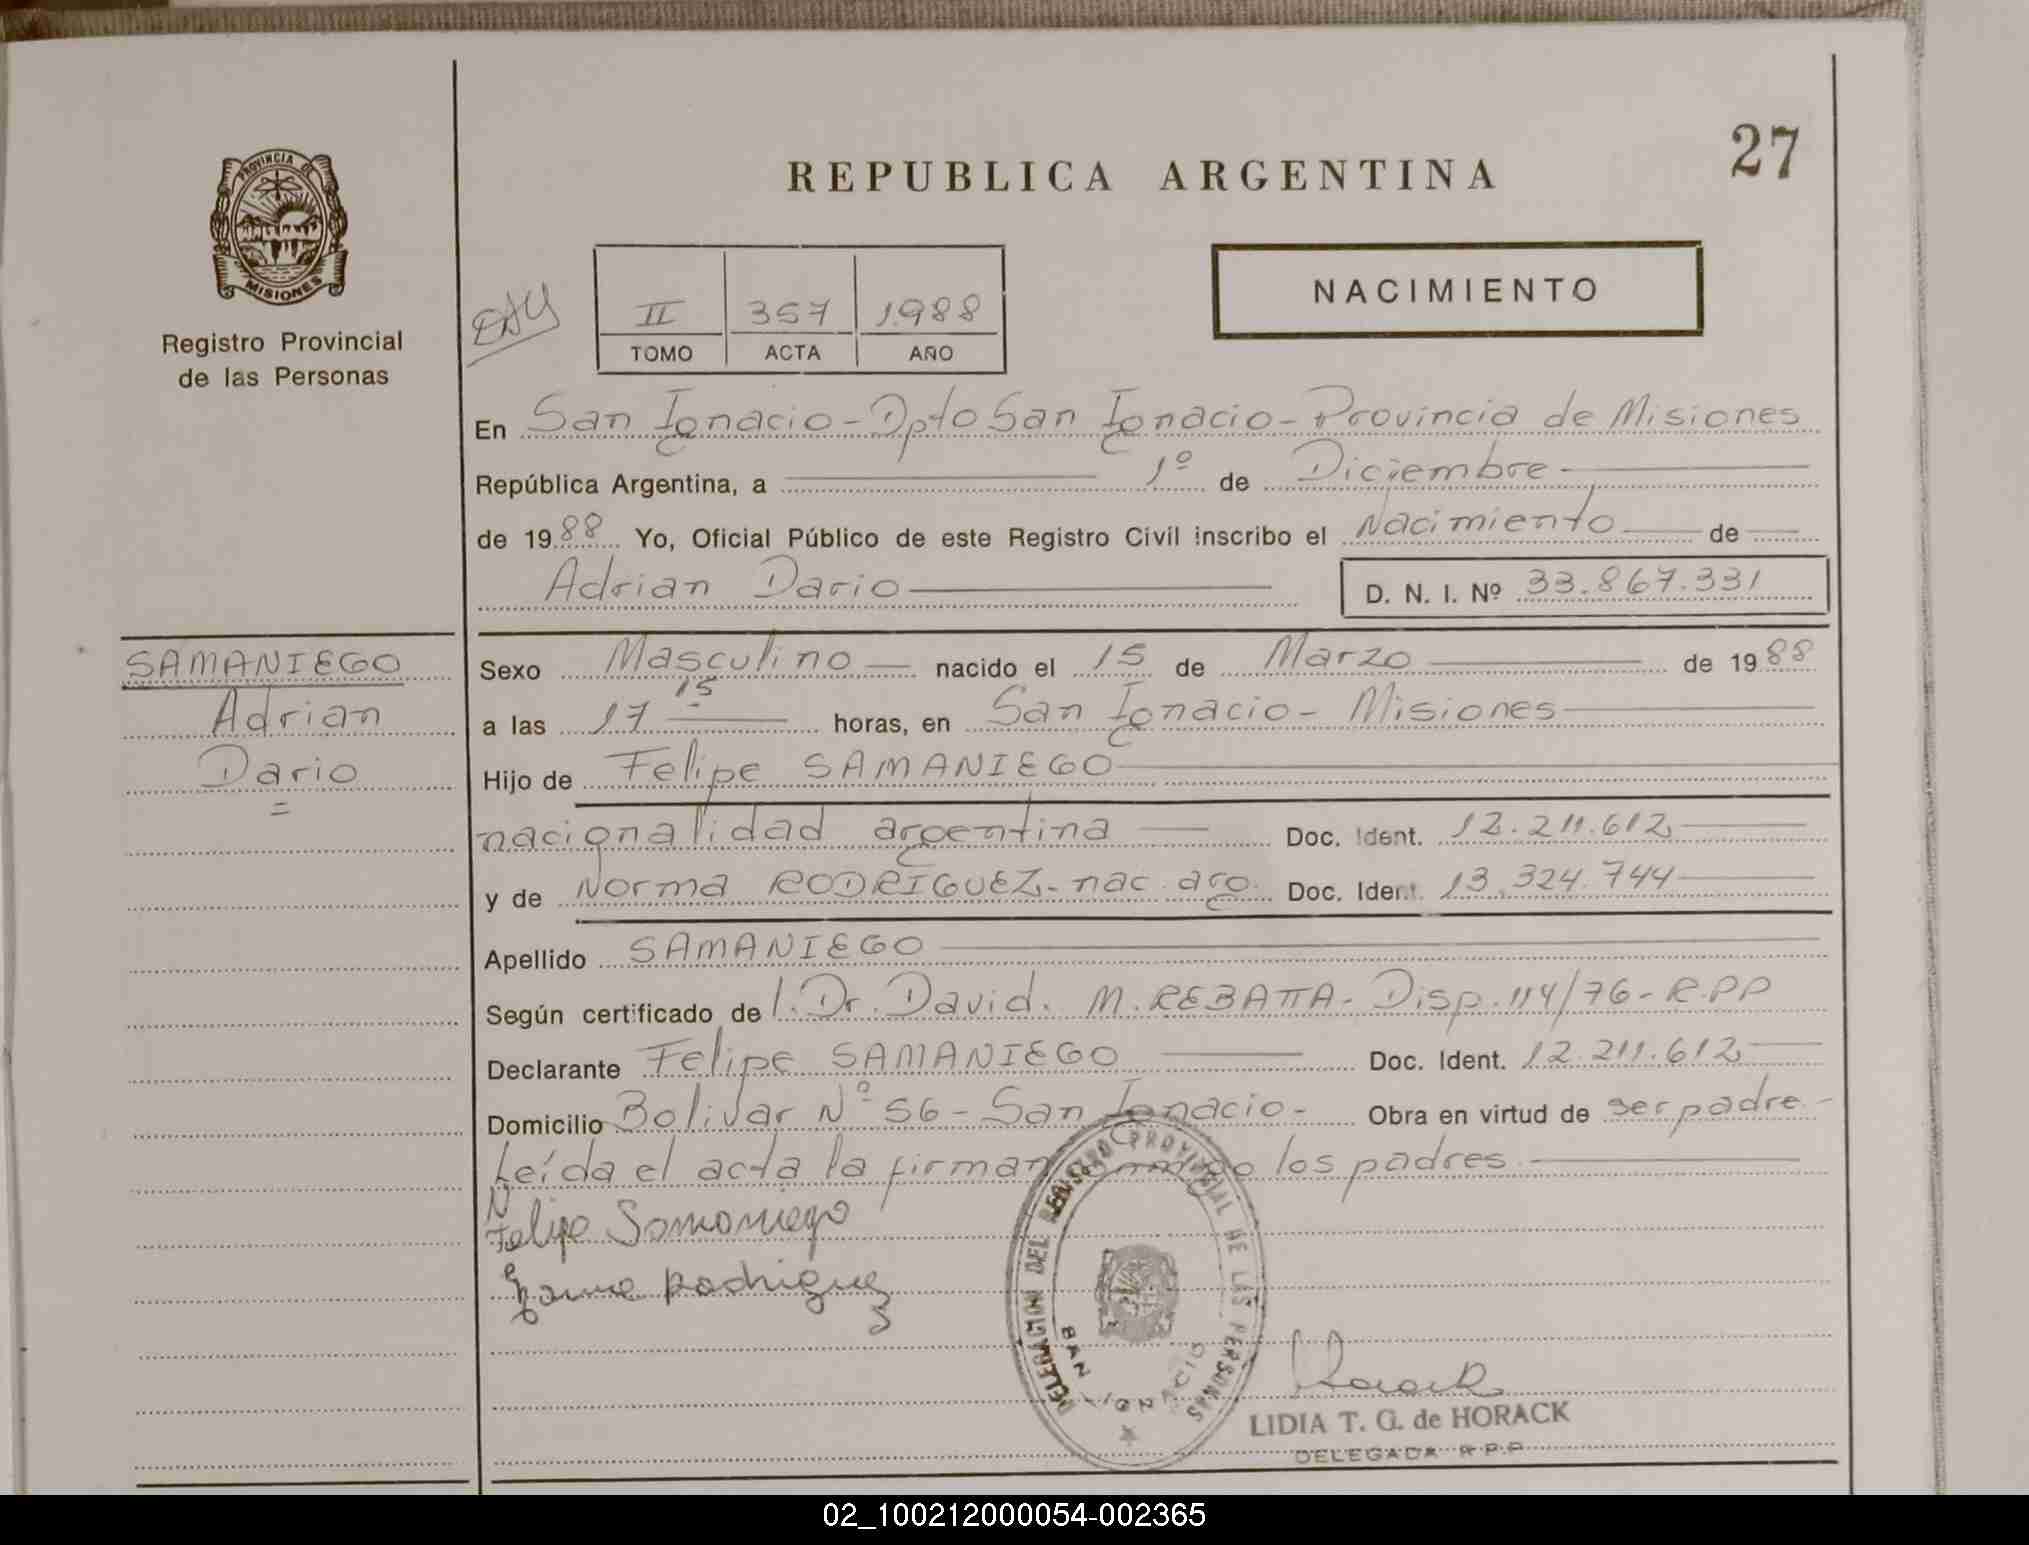 27
REPUBLICA ARGENTINA
PROVINCIA DE
MISIONES
Registro Provincial
de las Personas
II 357 1.988
TOMO ACTA AÑO
NACIMIENTO
En San Ignacio - Dpto San Ignacio - Provincia de Misiones
República Argentina, a 1º de Diciembre
de 1988 Yo, Oficial Público de este Registro Civil inscribo el Nacimiento de
Adrian Dario D. N. I. Nº 33.867.331
SAMANIEGO
Adrian
Dario
Sexo Masculino nacido el 15 de Marzo de 1988
a las 17 15 horas, en San Ignacio - Misiones
Hijo de Felipe SAMANIEGO
nacionalidad argentina Doc. Ident. 12.211.612
y de Norma RODRIGUEZ - nac. arg. Doc. Ident. 13.324.744
Apellido SAMANIEGO
Según certificado de l. Dr. David. M. REBATTA - Disp. 114/76 - R.PP
Declarante Felipe SAMANIEGO Doc. Ident. 12.211.612
Domicilio Bolivar Nº 56 - San Ignacio - Obra en virtud de ser padre.-
Leída el acta la firman conmigo los padres
Felipe Samaniego
Rodriguez
DELEGACION DEL REGISTRO PROVINCIAL DE LAS PERSONAS
SAN IGNACIO
Horack
LIDIA T. G. de HORACK
DELEGADA R.P.P.
02_100212000054-002365